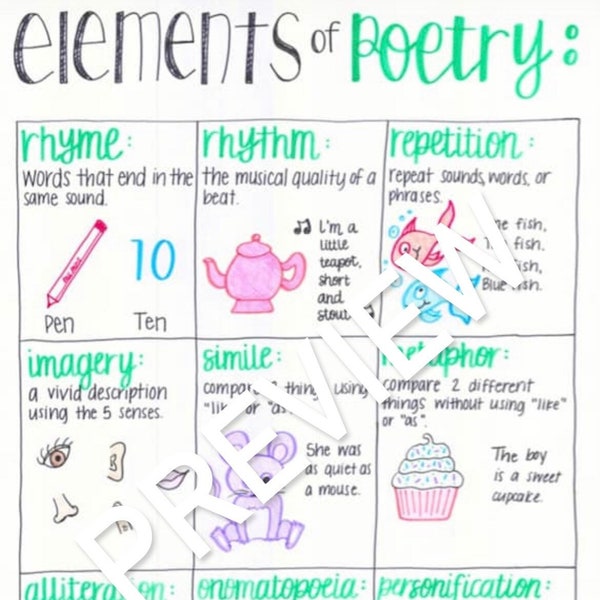 elements of Poetry:
rhyme:
words that end in the
same sound.
10
Pen
Ten
rhythm:
the musical quality of a
beat.
I'm a
little
teapot,
short
and
stout
repetition:
repeat sounds, words, or
phrases.
One fish,
fish.
fish,
Blue fish.
imagery:
a vivid description
using the 5 senses.
simile:
compare 2 things using
"like" or "as".
She was
as quiet as
a mouse.
metaphor:
compare 2 different
things without using "like"
or "as".
The boy
is a sweet
cupcake.
alliteration:
onomatopoeia:
personification:
PREVIEW